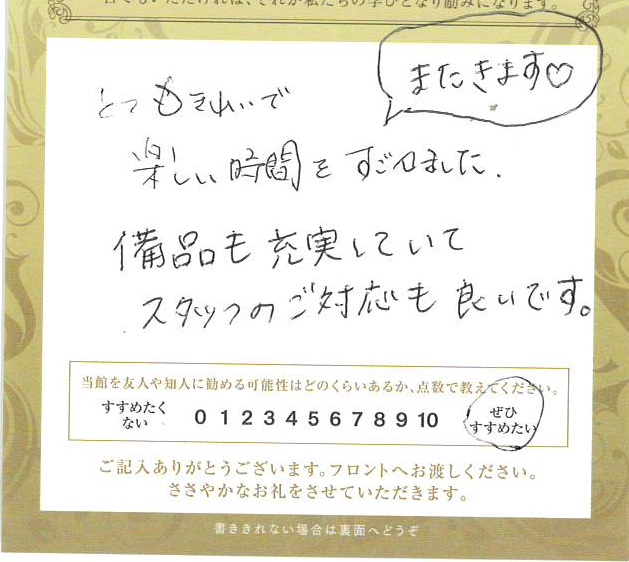 合でもいただければ、それが私たちの学びとなり励みになります。
またきます♡
とってもきれいで
楽しい時間をすごせました.
備品も充実していて
スタッフのご対応も良いです。
当館を友人や知人に勧める可能性はどのくらいあるか、点数で教えてください。
すすめたく
ない
0 1 2 3 4 5 6 7 8 9 10
ぜひ
すすめたい
ご記入ありがとうございます。フロントへお渡しください。
ささやかなお礼をさせていただきます。
書ききれない場合は裏面へどうぞ